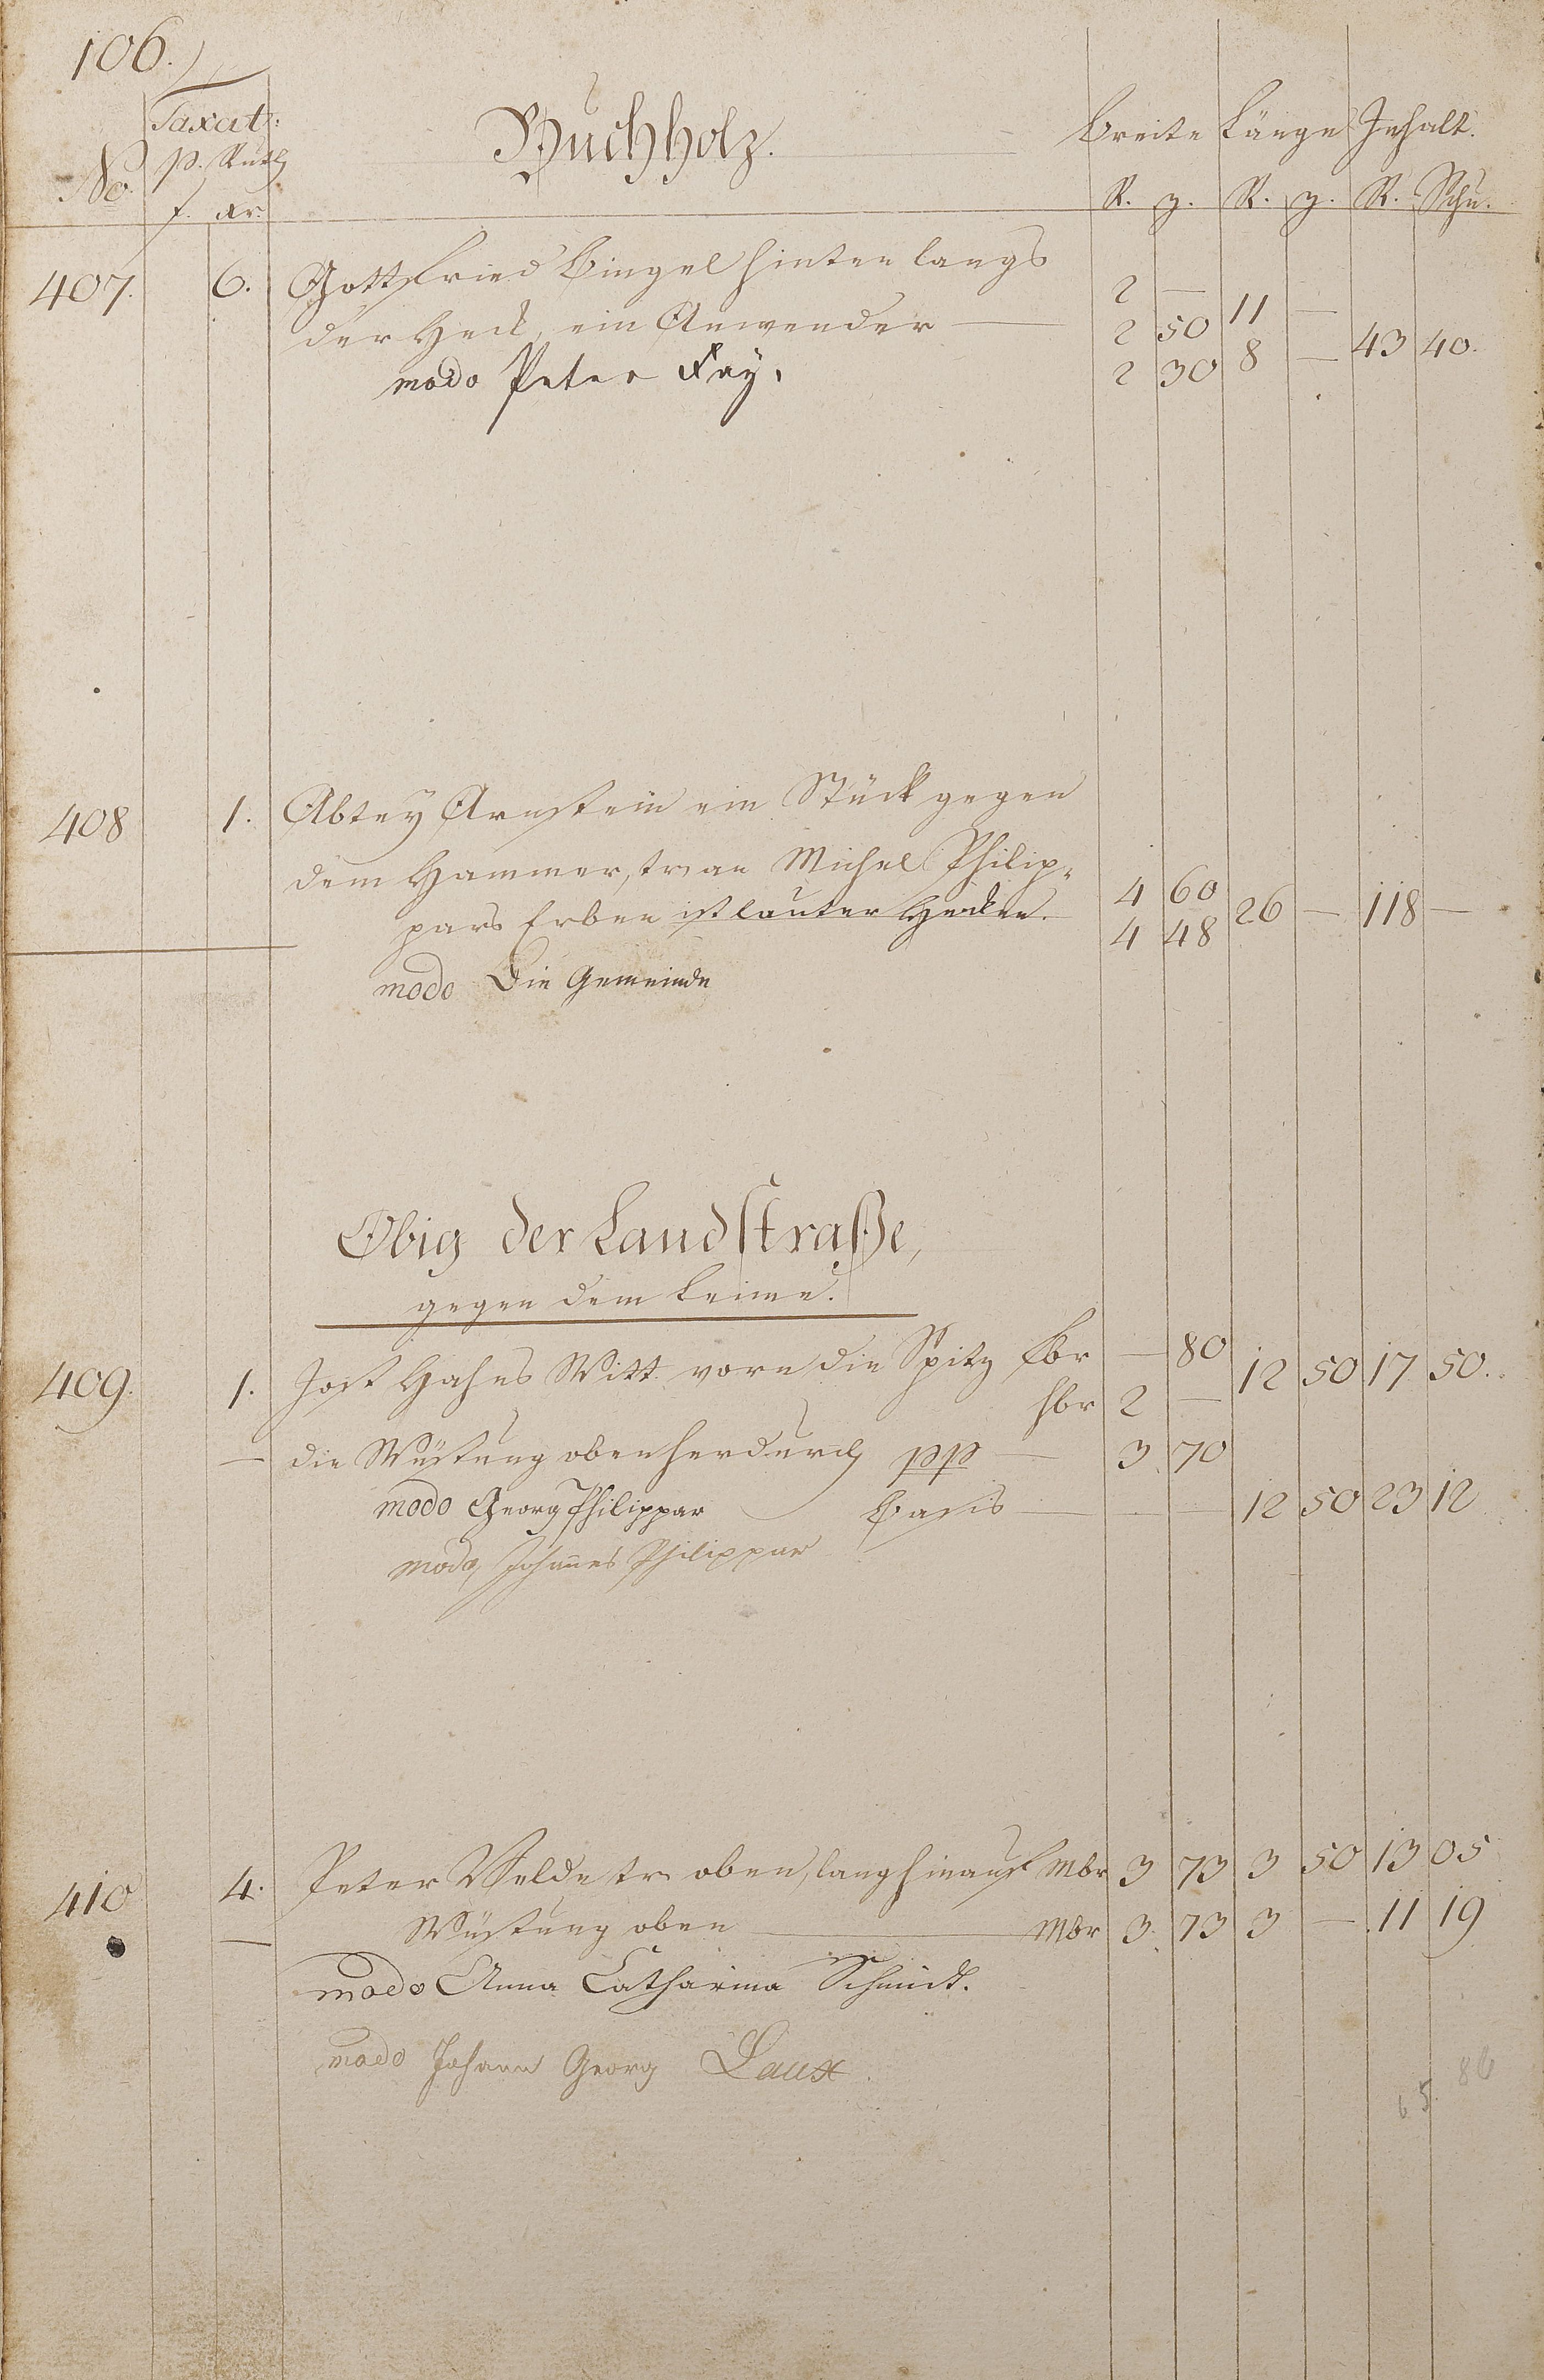 106.
Taxat:
Buchholz.
Breite Länge Inhalt.
No. p. Ruth
f. xr. R. z. R. z. R. Schu.
407. 6. Gottfried Bingel hinten langs 2 — 11 —
der Heck, ein Anwender — 2 50 8 — 43 40.
modo Peter Fay. 2 30
408 1. Abtey Arnstein ein Stück gegen
dem Hammer, tr. an Michel Philip= 4 60 26 — 118 —
pars Erben ist lauter Hecken. 4 48
modo Die Gemeinde
Obig der Landstraße,
gegen dem Leime.
409. 1. Jost Hahns Witt. vorn die Spitz fbr — 80 12 50 17 50.
hbr 2 —
— die Wüstung obenherdurch pp — 3 70
modo Georg Philippar Basis — — — 12 50 23 12
modo Johannes Philippar
410 4. Peter Velde tr. oben, lang hinauf Mbr 3 73 3 50 13 05
— Wüstung oben — Mbr 3. 73 3 — 11 19
modo Anna Catharina Schmidt.
modo Johann Georg Laux.
65. 86